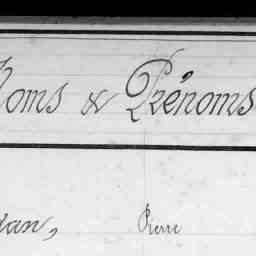 Noms & Prénoms
an, Pierre